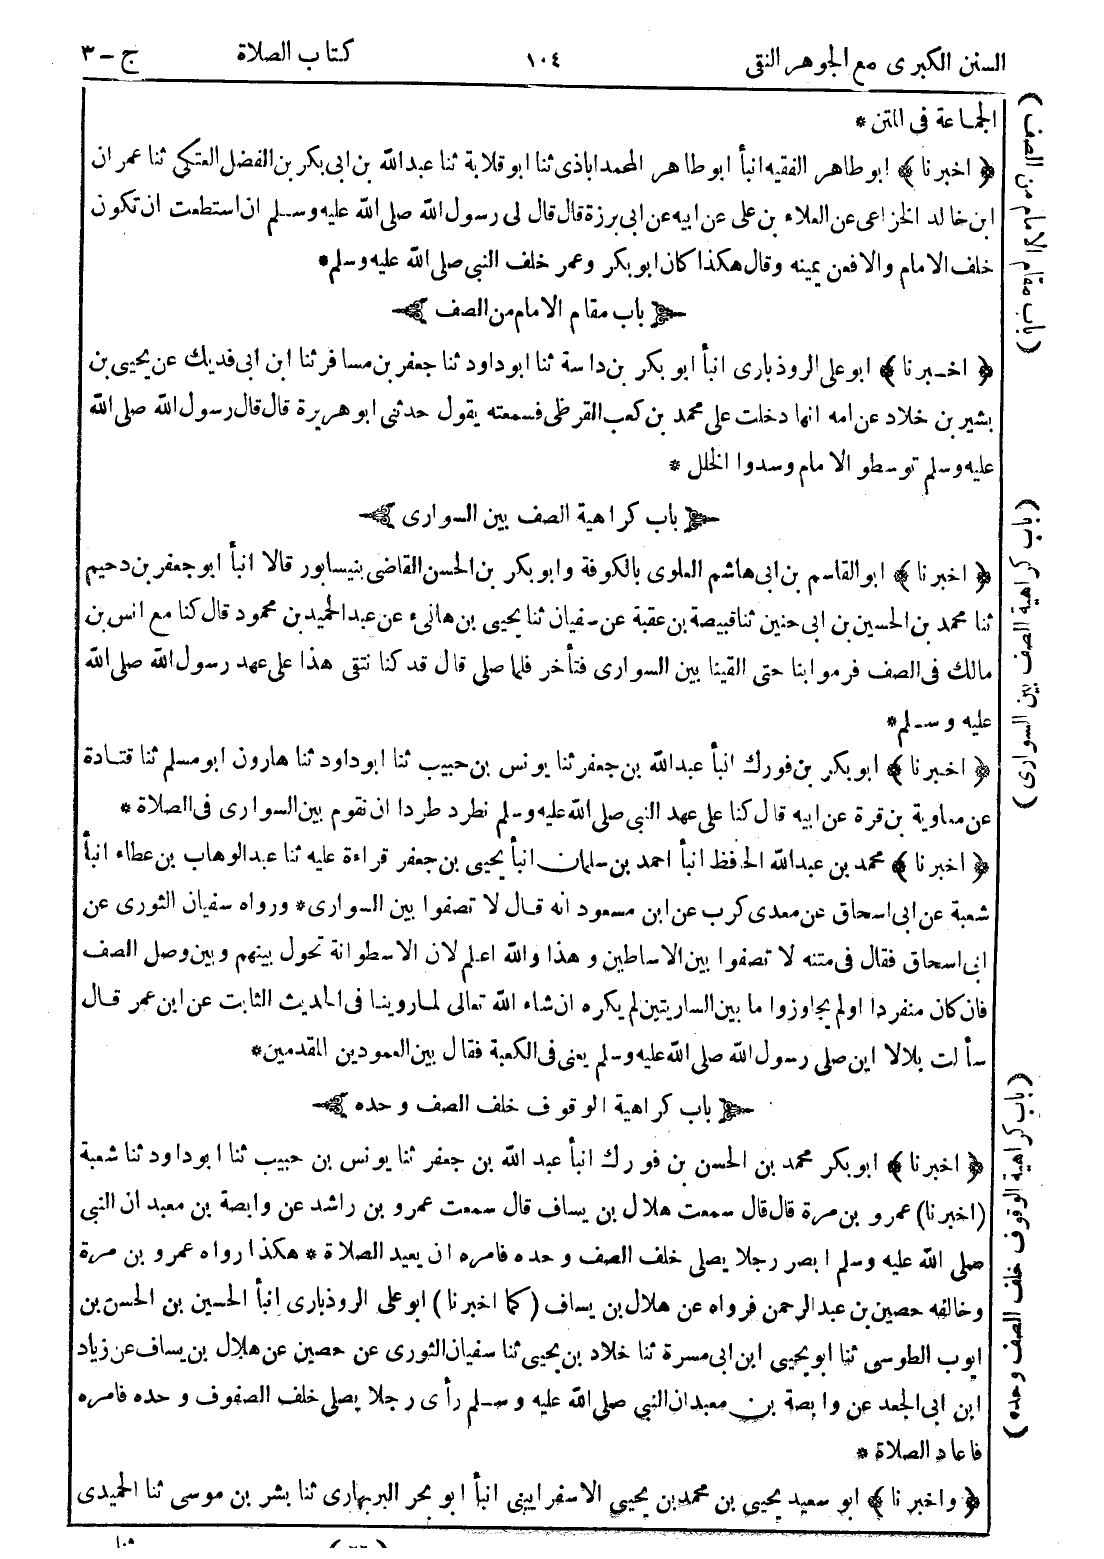 السنن الكبرى مع الجوهر النقى ١٠٤ كتاب الصلاة ج - ٣
الجماعة فى المتن *
﴿ اخبرنا ﴾ ابو طاهر الفقيه انبأ ابو طاهر المحمداباذى ثنا ابو قلابة ثنا عبد الله بن ابى بكر بن الفضل العتكى ثنا عمران
ابن خالد الخزاعى عن العلاء بن على عن ابيه عن ابى برزة قال قال لى رسول الله صلى الله عليه وسلم ان استطعت ان تكون
خلف الامام والا فعن يمينه وقال هكذا كان ابو بكر وعمر خلف النبى صلى الله عليه وسلم *
باب مقام الامام من الصف
﴿ اخبرنا ﴾ ابو على الروذبارى انبأ ابو بكر بن داسة ثنا ابو داود ثنا جعفر بن مسافر ثنا ابن ابى فديك عن يحيى بن
بشير بن خلاد عن امه انها دخلت على محمد بن كعب القرظى فسمعته يقول حدثنى ابو هريرة قال قال رسول الله صلى الله
عليه وسلم توسطوا الامام وسدوا الخلل *
باب كراهية الصف بين السوارى
﴿ اخبرنا ﴾ ابو القاسم بن ابى هاشم العلوى بالكوفة وابو بكر بن الحسن القاضى بنيسابور قالا انبأ ابو جعفر بن دحيم
ثنا محمد بن الحسين بن ابى حنين ثنا قبيصة بن عقبة عن سفيان ثنا يحيى بن هانىء عن عبد الحميد بن محمود قال كنا مع انس بن
مالك فى الصف فرموا بنا حتى القينا بين السوارى فتأخر فلما صلى قال قد كنا نتقى هذا على عهد رسول الله صلى الله
عليه وسلم *
﴿ اخبرنا ﴾ ابو بكر بن فورك انبأ عبد الله بن جعفر ثنا يونس بن حبيب ثنا ابو داود ثنا هارون ابو مسلم ثنا قتادة
عن معاوية بن قرة عن ابيه قال كنا على عهد النبى صلى الله عليه وسلم نطرد طردا ان نقوم بين السوارى فى الصلاة *
﴿ اخبرنا ﴾ محمد بن عبد الله الحافظ انبأ احمد بن سلمان انبأ يحيى بن جعفر قراءة عليه ثنا عبد الوهاب بن عطاء انبأ
شعبة عن ابى اسحاق عن معدى كرب عن ابن مسعود انه قال لا تصفوا بين السوارى * ورواه سفيان الثورى عن
ابى اسحاق فقال فى متنه لا تصفوا بين الاساطين وهذا والله اعلم لان الاسطوانة تحول بينهم وبين وصل الصف
فان كان منفردا او لم يجاوزوا ما بين الساريتين لم يكره ان شاء الله تعالى لما روينا فى الحديث الثابت عن ابن عمر قال
سألت بلالا اين صلى رسول الله صلى الله عليه وسلم يعنى فى الكعبة فقال بين العمودين المقدمين *
باب كراهية الوقوف خلف الصف وحده
﴿ اخبرنا ﴾ ابو بكر محمد بن الحسن بن فورك انبأ عبد الله بن جعفر ثنا يونس بن حبيب ثنا ابو داود ثنا شعبة
(اخبرنا) عمرو بن مرة قال قال سمعت هلال بن يساف قال سمعت عمرو بن راشد عن وابصة بن معبد ان النبى
صلى الله عليه وسلم ابصر رجلا يصلى خلف الصف وحده فامره ان يعيد الصلاة * هكذا رواه عمرو بن مرة
وخالفه حصين بن عبد الرحمن فرواه عن هلال بن يساف (كما اخبرنا) ابو على الروذبارى انبأ الحسين بن الحسن بن
ايوب الطوسى ثنا ابو يحيى ابن ابى مسرة ثنا خلاد بن يحيى ثنا سفيان الثورى عن حصين عن هلال بن يساف عن زياد
ابن ابى الجعد عن وابصة بن معبد ان النبى صلى الله عليه وسلم رأى رجلا يصلى خلف الصفوف وحده فامره
فاعاد الصلاة *
﴿ واخبرنا ﴾ ابو سعيد يحيى بن محمد بن يحيى الاسفراييني انبأ ابو بحر البربهارى ثنا بشر بن موسى ثنا الحميدى
ثنا
(باب مقام الامام من الصف)
(باب كراهية الصف بين السوارى)
(باب كراهية الوقوف خلف الصف وحده)